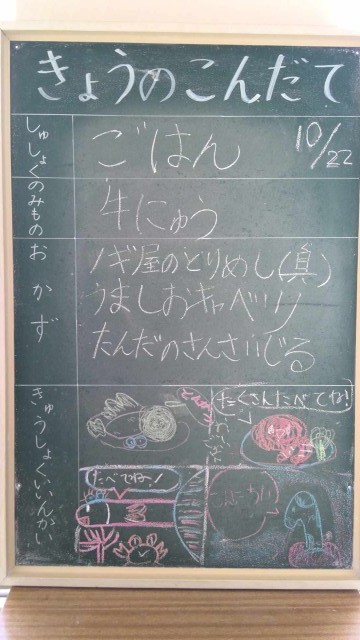 きょうのこんだて
しゅしょく
ごはん
10/22
のみもの
牛にゅう
おかず
ノギ屋のとりめし(真)
うましおキャベツ
たんだのさんさいじる
きゅうしょくいいんかい
たくさんたべてね!
たべてね!